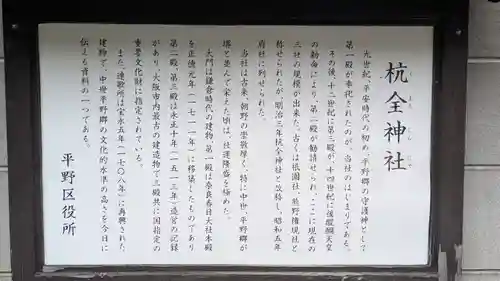 杭全神社
くまた じんじゃ
九世紀、平安時代の初め、平野郷の守護神として
第一殿が奉祀されたのが、当社のはじまりである。
その後、十二世紀に第三殿が、十四世紀に後醍醐天皇
の勅命により、第二殿が勧請せられ、ここに現在の
三社の規模が出来た。古くは祇園社、熊野権現社と
称せられたが、明治三年杭全神社と改称し、昭和五年
府社に列せられた。
当社は古来、朝野の崇敬厚く、特に中世、平野郷が
堺と並んで栄えた頃は、社運隆盛を極めた。
大門は鎌倉時代の建物、第一殿は奈良春日大社本殿
を正徳元年（一七一一年）に移築したものであり
第二殿、第三殿は永正十年（一五一三年）造営の記録
があり、大阪市内最古の建造物で三殿共に国指定の
重要文化財に指定されている。
また、連歌所は宝永五年（一七〇八年）に再興された
建物で、中世平野郷の文化的水準の高さを今日に
伝える資料の一つである。
平野区役所